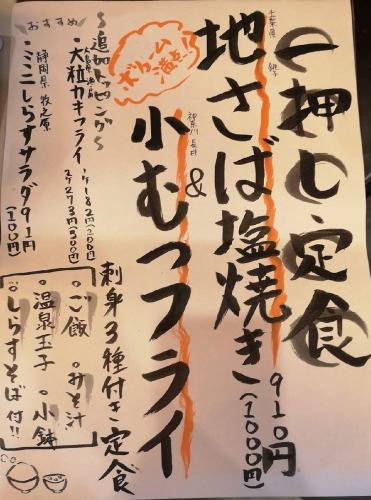 一押し定食
千葉県 銚子
地さば塩焼き
910円
(1000円)
&
神奈川 長井
小むつフライ
ボリューム
満点!!
刺身3種付き定食
〜追加トッピング〜
大粒カキフライ
1ケ182円(200円)
2ケ273円(300円)
おすすめ
・ミニしらすサラダ91円
(100円)
静岡県 牧之原
・ご飯 ・みそ汁
・温泉玉子 ・小鉢
・しらすそば付!!